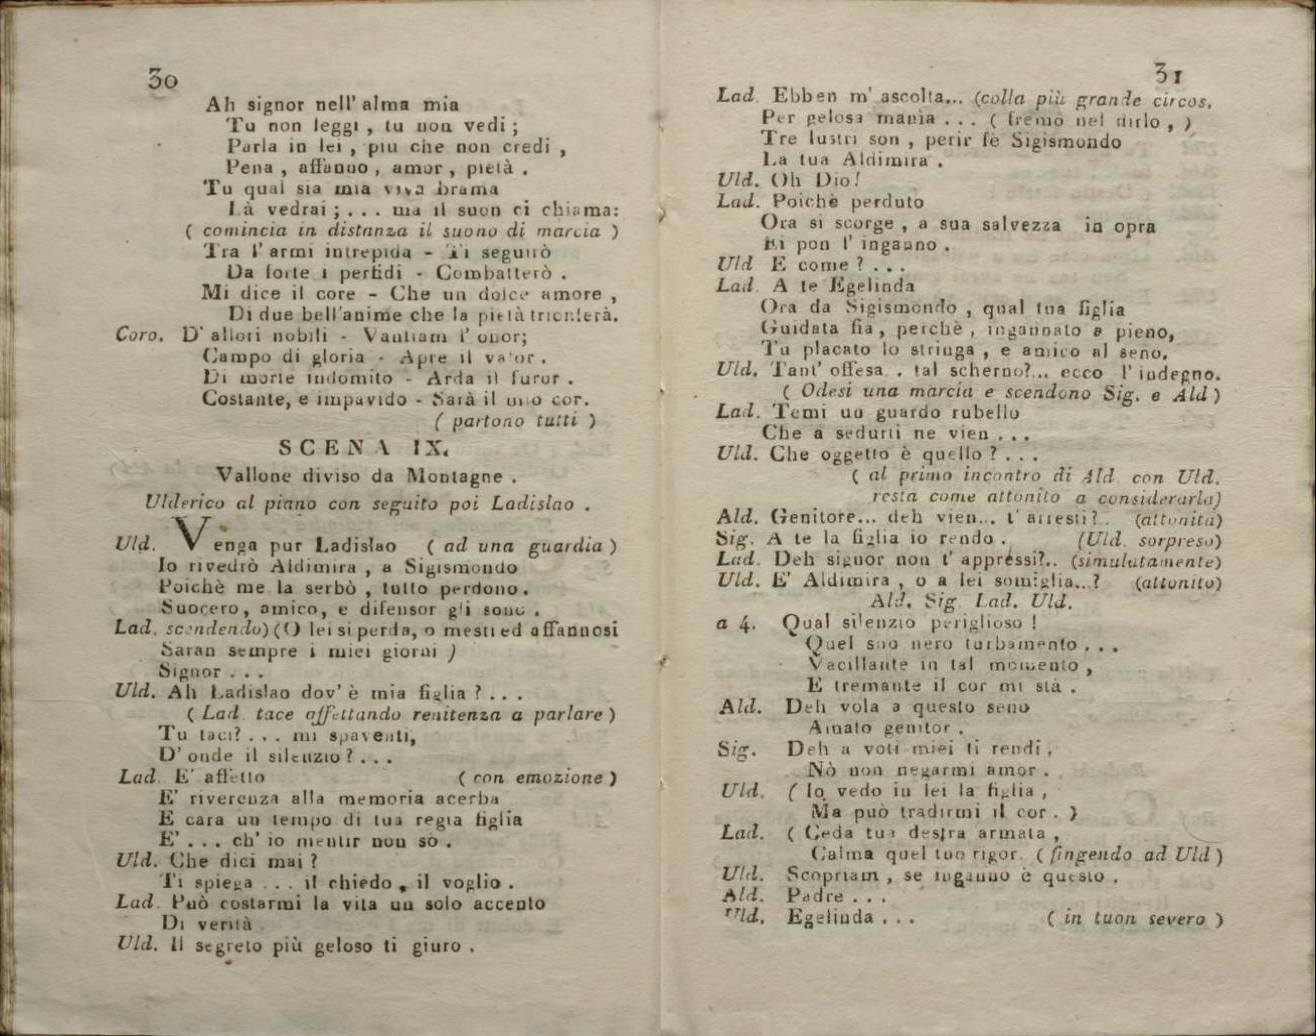 30
Ah signor nell' alma mia
Tu non leggi , tu non vedi ;
Parla in lei , piu che non credi ,
Pena , affanno , amor , pietà .
Tu qual sia mia viva brama
Là vedrai ; . . . ma il suon ci chiama:
( comincia in distanza il suono di marcia )
Tra l' armi intrepida - Ti seguirò
Da forte i perfidi - Combatterò .
Mi dice il core - Che un dolce amore ,
Di due bell'anime che la pietà trionferà.
Coro. D' allori nobili - Vantiam l' onor;
Campo di gloria - Apre il valor .
Di morte indomito - Arda il furor .
Costante, e impavido - Sarà il mio cor.
( partono tutti )
SCENA IX.
Vallone diviso da Montagne .
Ulderico al piano con seguito poi Ladislao .
Uld. Venga pur Ladislao ( ad una guardia )
Io rivedrò Aldimira , a Sigismondo
Poichè me la serbò , tutto perdono.
Suocero, amico, e difensor gli sono .
Lad. scendendo) (O lei si perda, o mesti ed affannosi
Saran sempre i miei giorni )
Signor . . .
Uld. Ah Ladislao dov' è mia figlia ? . . .
( Lad. tace affettando renitenza a parlare )
Tu taci? . . . mi spaventi,
D' onde il silenzio ? . . .
Lad. E' affetto ( con emozione )
E' riverenza alla memoria acerba
E cara un tempo di tua regia figlia
E' . . . ch' io mentir non sò .
Uld. Che dici mai ?
Ti spiega . . . il chiedo , il voglio .
Lad. Può costarmi la vita un solo accento
Di verità
Uld. Il segreto più geloso ti giuro .
31
Lad. Ebben m' ascolta... (colla più grande circos.
Per gelosa mania . . . ( fremo nel dirlo , )
Tre lustri son , perir fè Sigismondo
La tua Aldimira .
Uld. Oh Dio!
Lad. Poichè perduto
Ora si scorge , a sua salvezza in opra
Ei pon l' inganno .
Uld E come ? . . .
Lad. A te Egelinda
Ora da Sigismondo , qual tua figlia
Guidata fia , perchè , ingannato a pieno,
Tu placato lo stringa , e amico al seno.
Uld. Tant' offesa . tal scherno?... ecco l' indegno.
( Odesi una marcia e scendono Sig. e Ald )
Lad. Temi un guardo rubello
Che a sedurti ne vien . . .
Uld. Che oggetto è quello ? . . .
( al primo incontro di Ald. con Uld.
resta come attonito a considerarla)
Ald. Genitore... deh vien... t' arresti?.. (attonita)
Sig. A te la figlia io rendo . (Uld. sorpreso)
Lad. Deh signor non t' appréssi?.. (simulatamente)
Uld. E' Aldimira , o a lei somiglia...? (attonito)
Ald. Sig. Lad. Uld.
a 4. Qual silenzio periglioso !
Quel suo nero turbamento . . .
Vacillante in tal momento ,
E tremante il cor mi stà .
Ald. Deh vola a questo seno
Amato genitor .
Sig. Deh a voti miei ti rendi ,
Nò non negarmi amor .
Uld. ( Io vedo in lei la figlia ,
Ma può tradirmi il cor . )
Lad. ( Ceda tua destra armata ,
Calma quel tuo rigor. ( fingendo ad Uld )
Uld. Scopriam , se inganno è questo .
Ald. Padre . . .
Uld. Egelinda . . . ( in tuon severo )